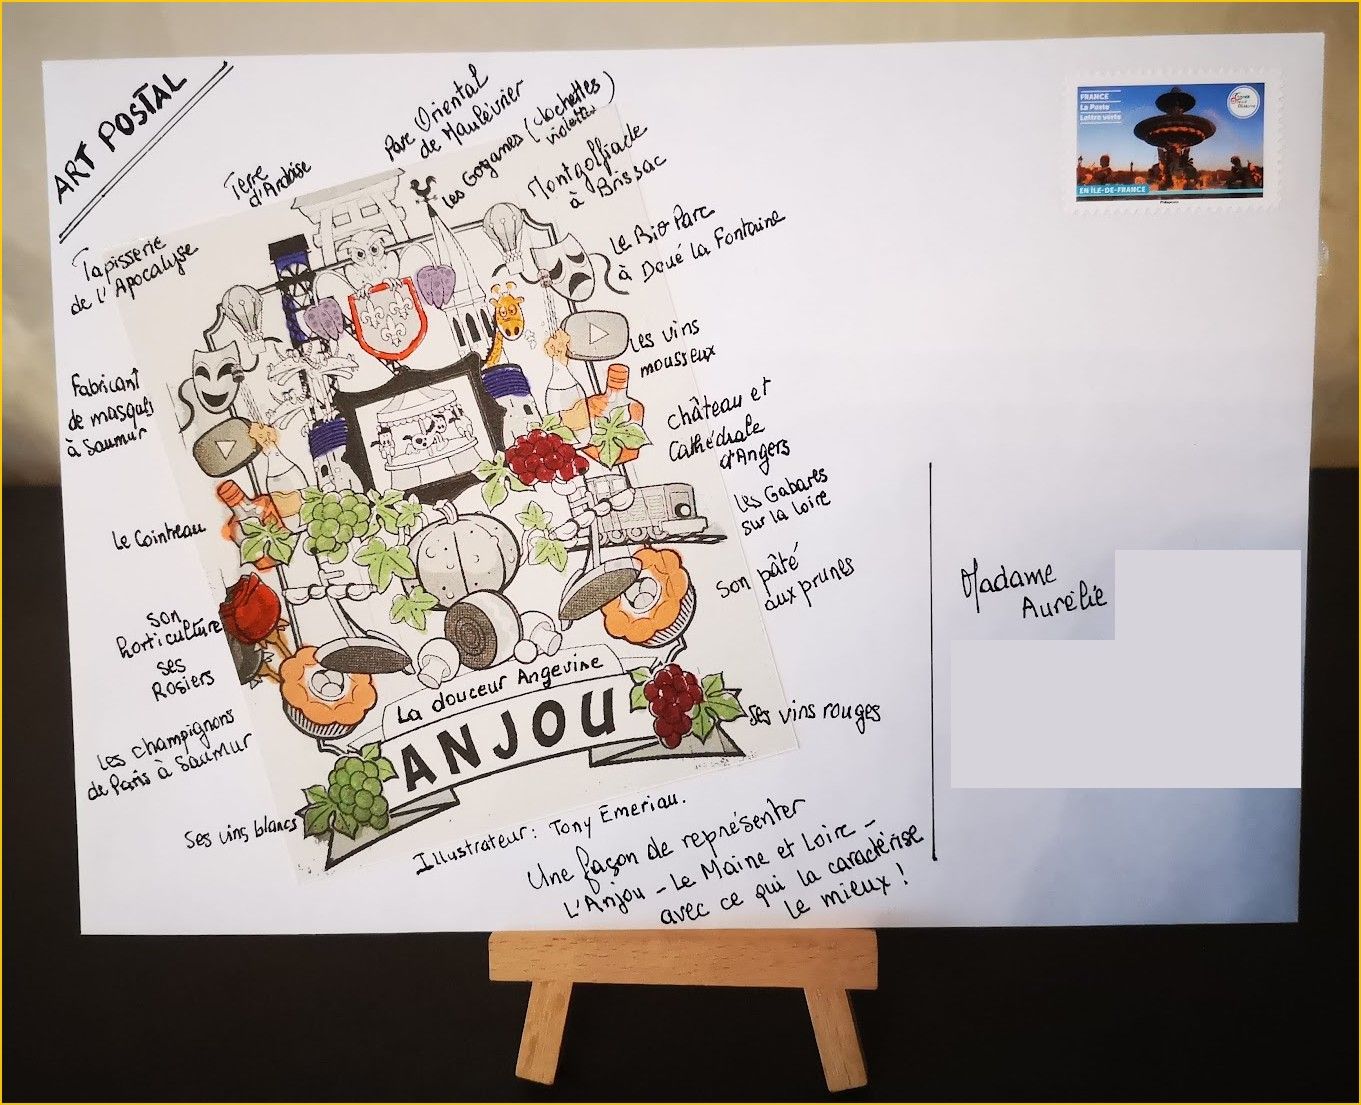 ART POSTAL
Terre
d'Ardoise
Parc Oriental
de Maulévrier
les Goganes (clochettes
violettes)
Montgolfiade
à Brissac
Le Bio Parc
à Doué la Fontaine
les vins
mousseux
château et
Cathédrale
d'Angers
les Gabares
sur la loire
Son pâté
aux prunes
Ses vins rouges
Tapisserie
de l'Apocalypse
Fabricant
de masques
à Saumur
le Cointreau
son
horticulture
ses
Rosiers
les champignons
de Paris à Saumur
Ses vins blancs
La douceur Angevine
ANJOU
Illustrateur: Tony Emeriau.
Une façon de représenter
L'Anjou - Le Maine et Loire -
avec ce qui la caractérise
le mieux !
FRANCE
La Poste
Lettre verte
EN ÎLE-DE-FRANCE
Madame
Aurélie